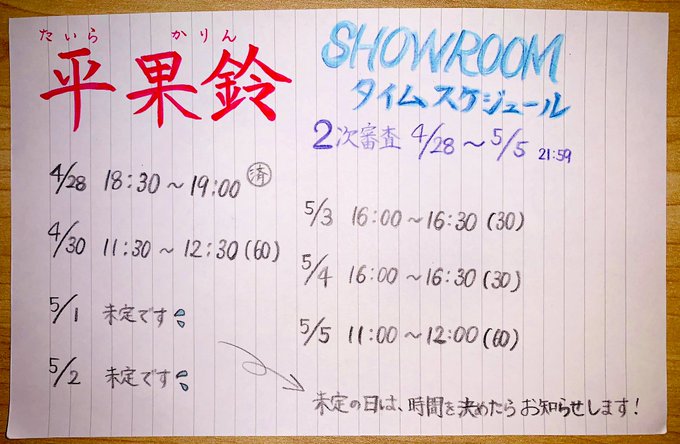 たいら かりん
平果鈴
SHOWROOM
タイムスケジュール
2次審査 4/28～5/5 21:59
4/28 18:30～19:00 済
4/30 11:30～12:30(60)
5/1 未定です
5/2 未定です
5/3 16:00～16:30(30)
5/4 16:00～16:30(30)
5/5 11:00～12:00(60)
未定の日は、時間を決めたらお知らせします!